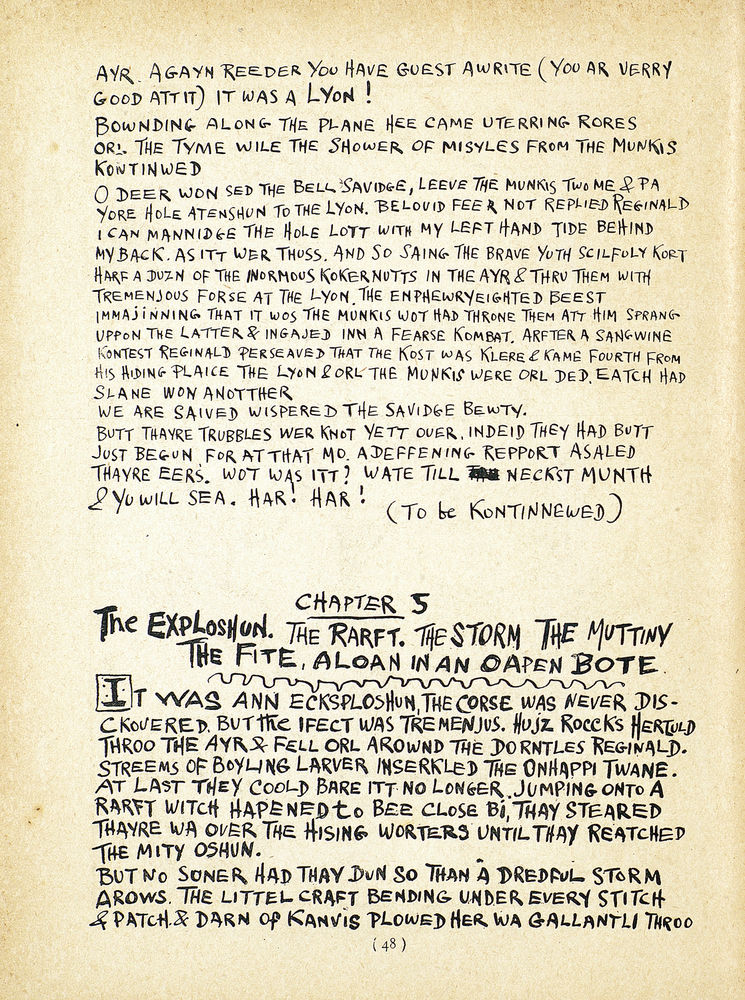 AYR. AGAYN REEDER YOU HAVE GUEST AWRITE (YOU AR VERRY
GOOD ATT IT) IT WAS A LYON!
BOWNDING ALONG THE PLANE HEE CAME UTERRING RORES
ORL THE TYME WILE THE SHOWER OF MISYLES FROM THE MUNKIS
KONTINWED
O DEER WON SED THE BELL SAVIDGE, LEEVE THE MUNKIS TWO ME & PA
YORE HOLE ATENSHUN TO THE LYON. BELOVID FEER NOT REPLIED REGINALD
I CAN MANNIDGE THE HOLE LOTT WITH MY LEFT HAND TIDE BEHIND
MY BACK. AS ITT WER THUSS. AND SO SAING THE BRAVE YUTH SCILFULY KORT
HARF A DUZN OF THE INORMOUS KOKERNUTTS IN THE AYR & THRU THEM WITH
TREMENJOUS FORSE AT THE LYON. THE ENPHEWRYEIGHTED BEEST
IMMAJINNING THAT IT WOS THE MUNKIS WOT HAD THRONE THEM ATT HIM SPRANG
UPPON THE LATTER & INGAJED INN A FEARSE KOMBAT. ARFTER A SANGWINE
KONTEST REGINALD PERSEAVED THAT THE KOST WAS KLERE & KAME FOURTH FROM
HIS HIDING PLAICE THE LYON & ORL THE MUNKIS WERE ORL DED. EATCH HAD
SLANE WON ANOTTHER
WE ARE SAIVED WISPERED THE SAVIDGE BEWTY.
BUTT THAYRE TRUBBLES WER KNOT YETT OVER. INDEID THEY HAD BUTT
JUST BEGUN FOR AT THAT MO. A DEFFENING REPPORT ASALED
THAYRE EERS. WOT WAS ITT? WATE TILL NECKST MUNTH
& YU WILL SEA. HAR! HAR!
(TO be KONTINNEWED)
CHAPTER 5
The EXPLOSHUN. THE RARFT. THE STORM THE MUTTINY
THE FITE, ALOAN IN AN OAPEN BOTE
IT WAS ANN ECKSPLOSHUN, THE CORSE WAS NEVER DIS-
CKOVERED. BUT the IFECT WAS TREMENJUS. HUJZ ROCCKS HERTULD
THROO THE AYR & FELL ORL AROWND THE DORNTLES REGINALD.
STREEMS OF BOYLING LARVER INSERKLED THE ONHAPPI TWANE.
AT LAST THEY COOLD BARE ITT NO LONGER. JUMPING ONTO A
RARFT WITCH HAPENED to BEE CLOSE BI, THAY STEARED
THAYRE WA OVER THE HISING WORTERS UNTIL THAY REATCHED
THE MITY OSHUN.
BUT NO SONER HAD THAY DUN SO THAN A DREDFUL STORM
AROWS. THE LITTEL CRAFT BENDING UNDER EVERY STITCH
& PATCH & DARN OF KANVIS PLOWED HER WA GALLANTLI THROO
(48)